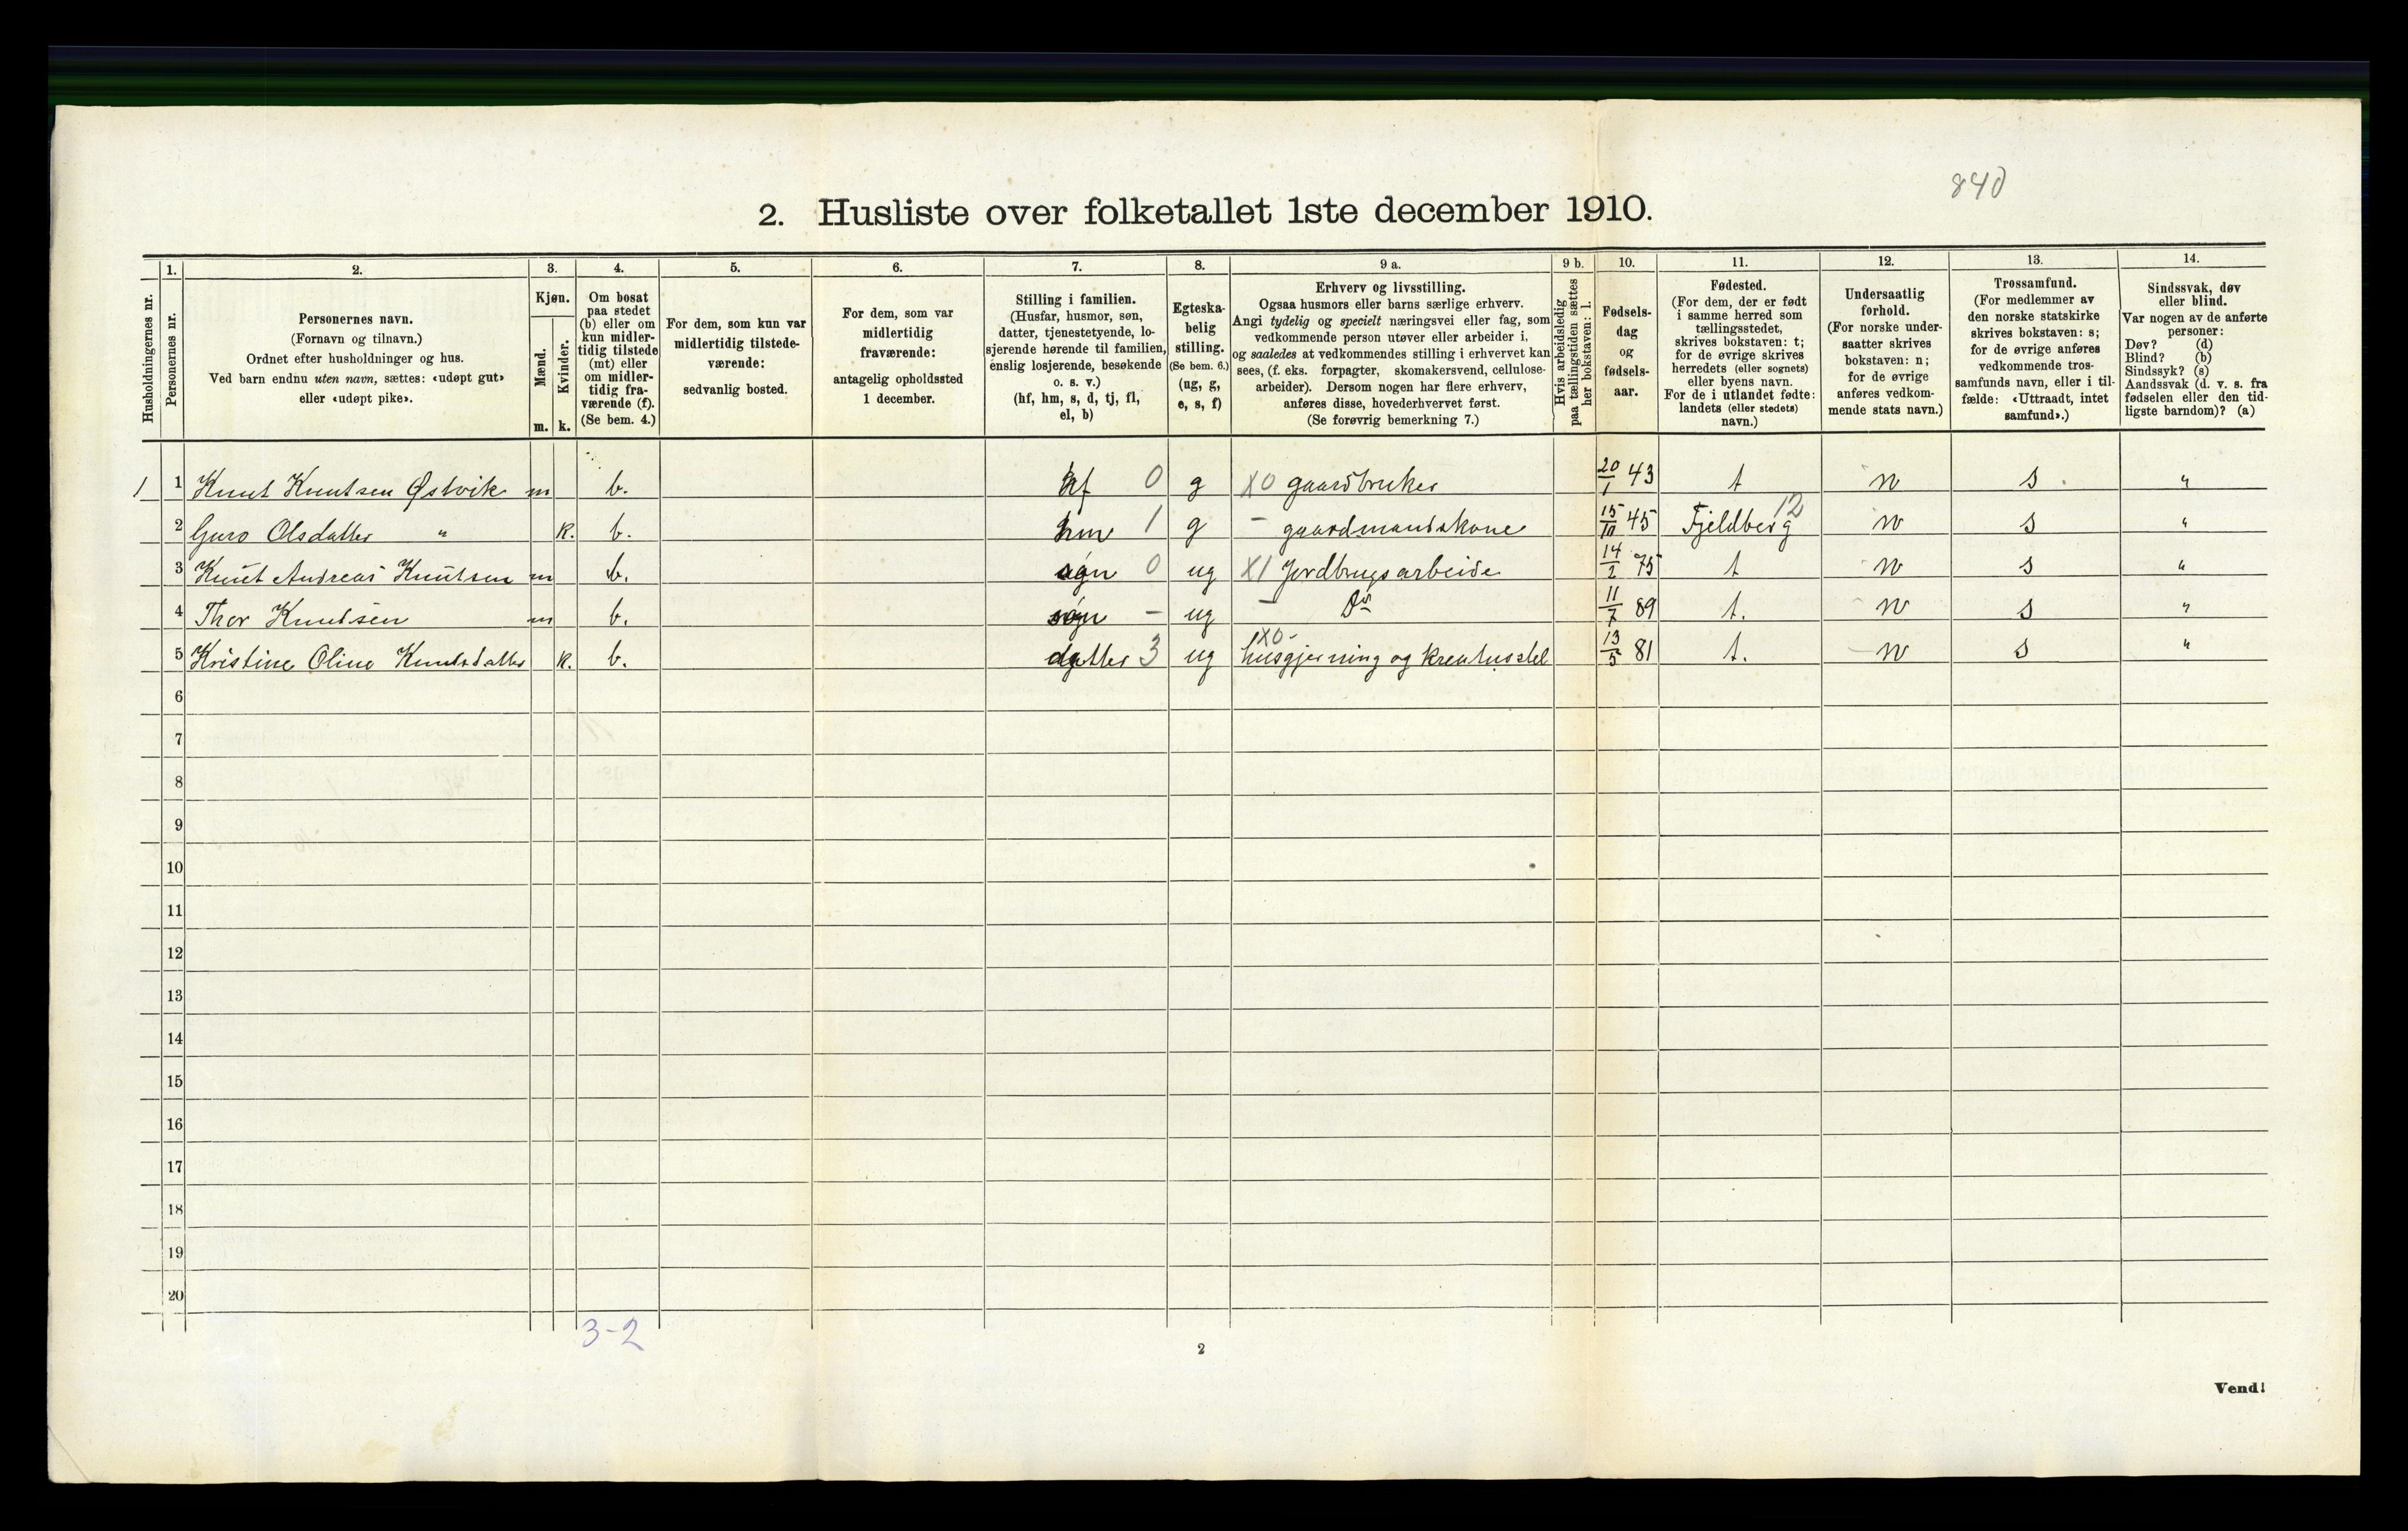 840
2. Husliste over folketallet 1ste december 1910.
Husholdningernes nr.
1.
Personernes nr.
2.
Personernes navn.
(Fornavn og tilnavn.)
Ordnet efter husholdninger og hus.
Ved barn endnu uten navn, sættes: «udøpt gut»
eller «udøpt pike».
3.
Kjøn.
Mænd.
Kvinder.
m. k.
4.
Om bosat
paa stedet
(b) eller om
kun midler-
tidig tilstede
(mt) eller
om midler-
tidig fra-
værende (f).
(Se bem. 4.)
5.
For dem, som kun var
midlertidig tilstede-
værende:
sedvanlig bosted.
6.
For dem, som var
midlertidig
fraværende:
antagelig opholdssted
1 december.
7.
Stilling i familien.
(Husfar, husmor, søn,
datter, tjenestetyende, lo-
sjerende hørende til familien,
enslig losjerende, besøkende
o. s. v.)
(hf, hm, s, d, tj, fl,
el, b)
8.
Egteska-
belig
stilling.
(Se bem. 6.)
(ug, g,
e, s, f)
9 a.
Erhverv og livsstilling.
Ogsaa husmors eller barns særlige erhverv.
Angi tydelig og specielt næringsvei eller fag, som
vedkommende person utøver eller arbeider i,
og saaledes at vedkommendes stilling i erhvervet kan
sees, (f. eks. forpagter, skomakersvend, cellulose-
arbeider). Dersom nogen har flere erhverv,
anføres disse, hovederhvervet først.
(Se forøvrig bemerkning 7.)
9 b.
Hvis arbeidsledig
paa tællingstiden sættes
her bokstaven: l.
10.
Fødsels-
dag
og
fødsels-
aar.
11.
Fødested.
(For dem, der er født
i samme herred som
tællingsstedet,
skrives bokstaven: t;
for de øvrige skrives
herredets (eller sognets)
eller byens navn.
For de i utlandet fødte:
landets (eller stedets)
navn.)
12.
Undersaatlig
forhold.
(For norske under-
saatter skrives
bokstaven: n;
for de øvrige
anføres vedkom-
mende stats navn.)
13.
Trossamfund.
(For medlemmer av
den norske statskirke
skrives bokstaven: s;
for de øvrige anføres
vedkommende tros-
samfunds navn, eller i til-
fælde: «Uttraadt, intet
samfund».)
14.
Sindssvak, døv
eller blind.
Var nogen av de anførte
personer:
Døv? (d)
Blind? (b)
Sindssyk? (s)
Aandssvak (d. v. s. fra
fødselen eller den tid-
ligste barndom)? (a)
1 1 Knut Knutsen Østvik m b. hf 0 g X0 gaardbruker 20/1 43 t n s "
2 Guro Olsdatter " k. b. hm 1 g - gaardmandskone 15/10 45 Fjeldberg 12 n s "
3 Knut Andreas Knutsen m b. søn 0 ug X1 Jordbrugsarbeide 14/2 75 t n s "
4 Thor Knudsen m b. søn - ug - Do 11/7 89 t. n s "
5 Kristine Oline Knutsdatter k. b. datter 3 ug X0- husgjerning og kreaturstel 13/5 81 t. n s "
6
7
8
9
10
11
12
13
14
15
16
17
18
19
20
3-2
2
Vend!